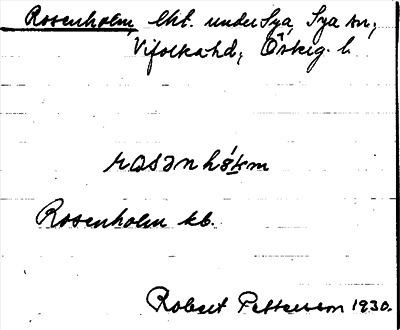 Rosenholm, lht. under Sya, Sya sn,
Vifolka hd, Östg. l.
rασənhɷ́ɫm
Rosenholm kb.
Robert Pettersson 1930.